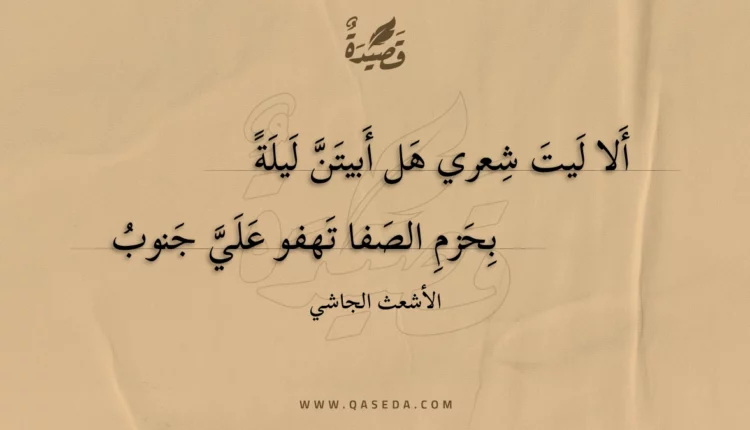 قَصِيدَةٌ
أَلا لَيتَ شِعري هَل أَبيتَنَّ لَيلَةً
بِحَزمِ الصَفا تَهفو عَلَيَّ جَنوبُ
الأشعث الجاشي
WWW.QASEDA.COM